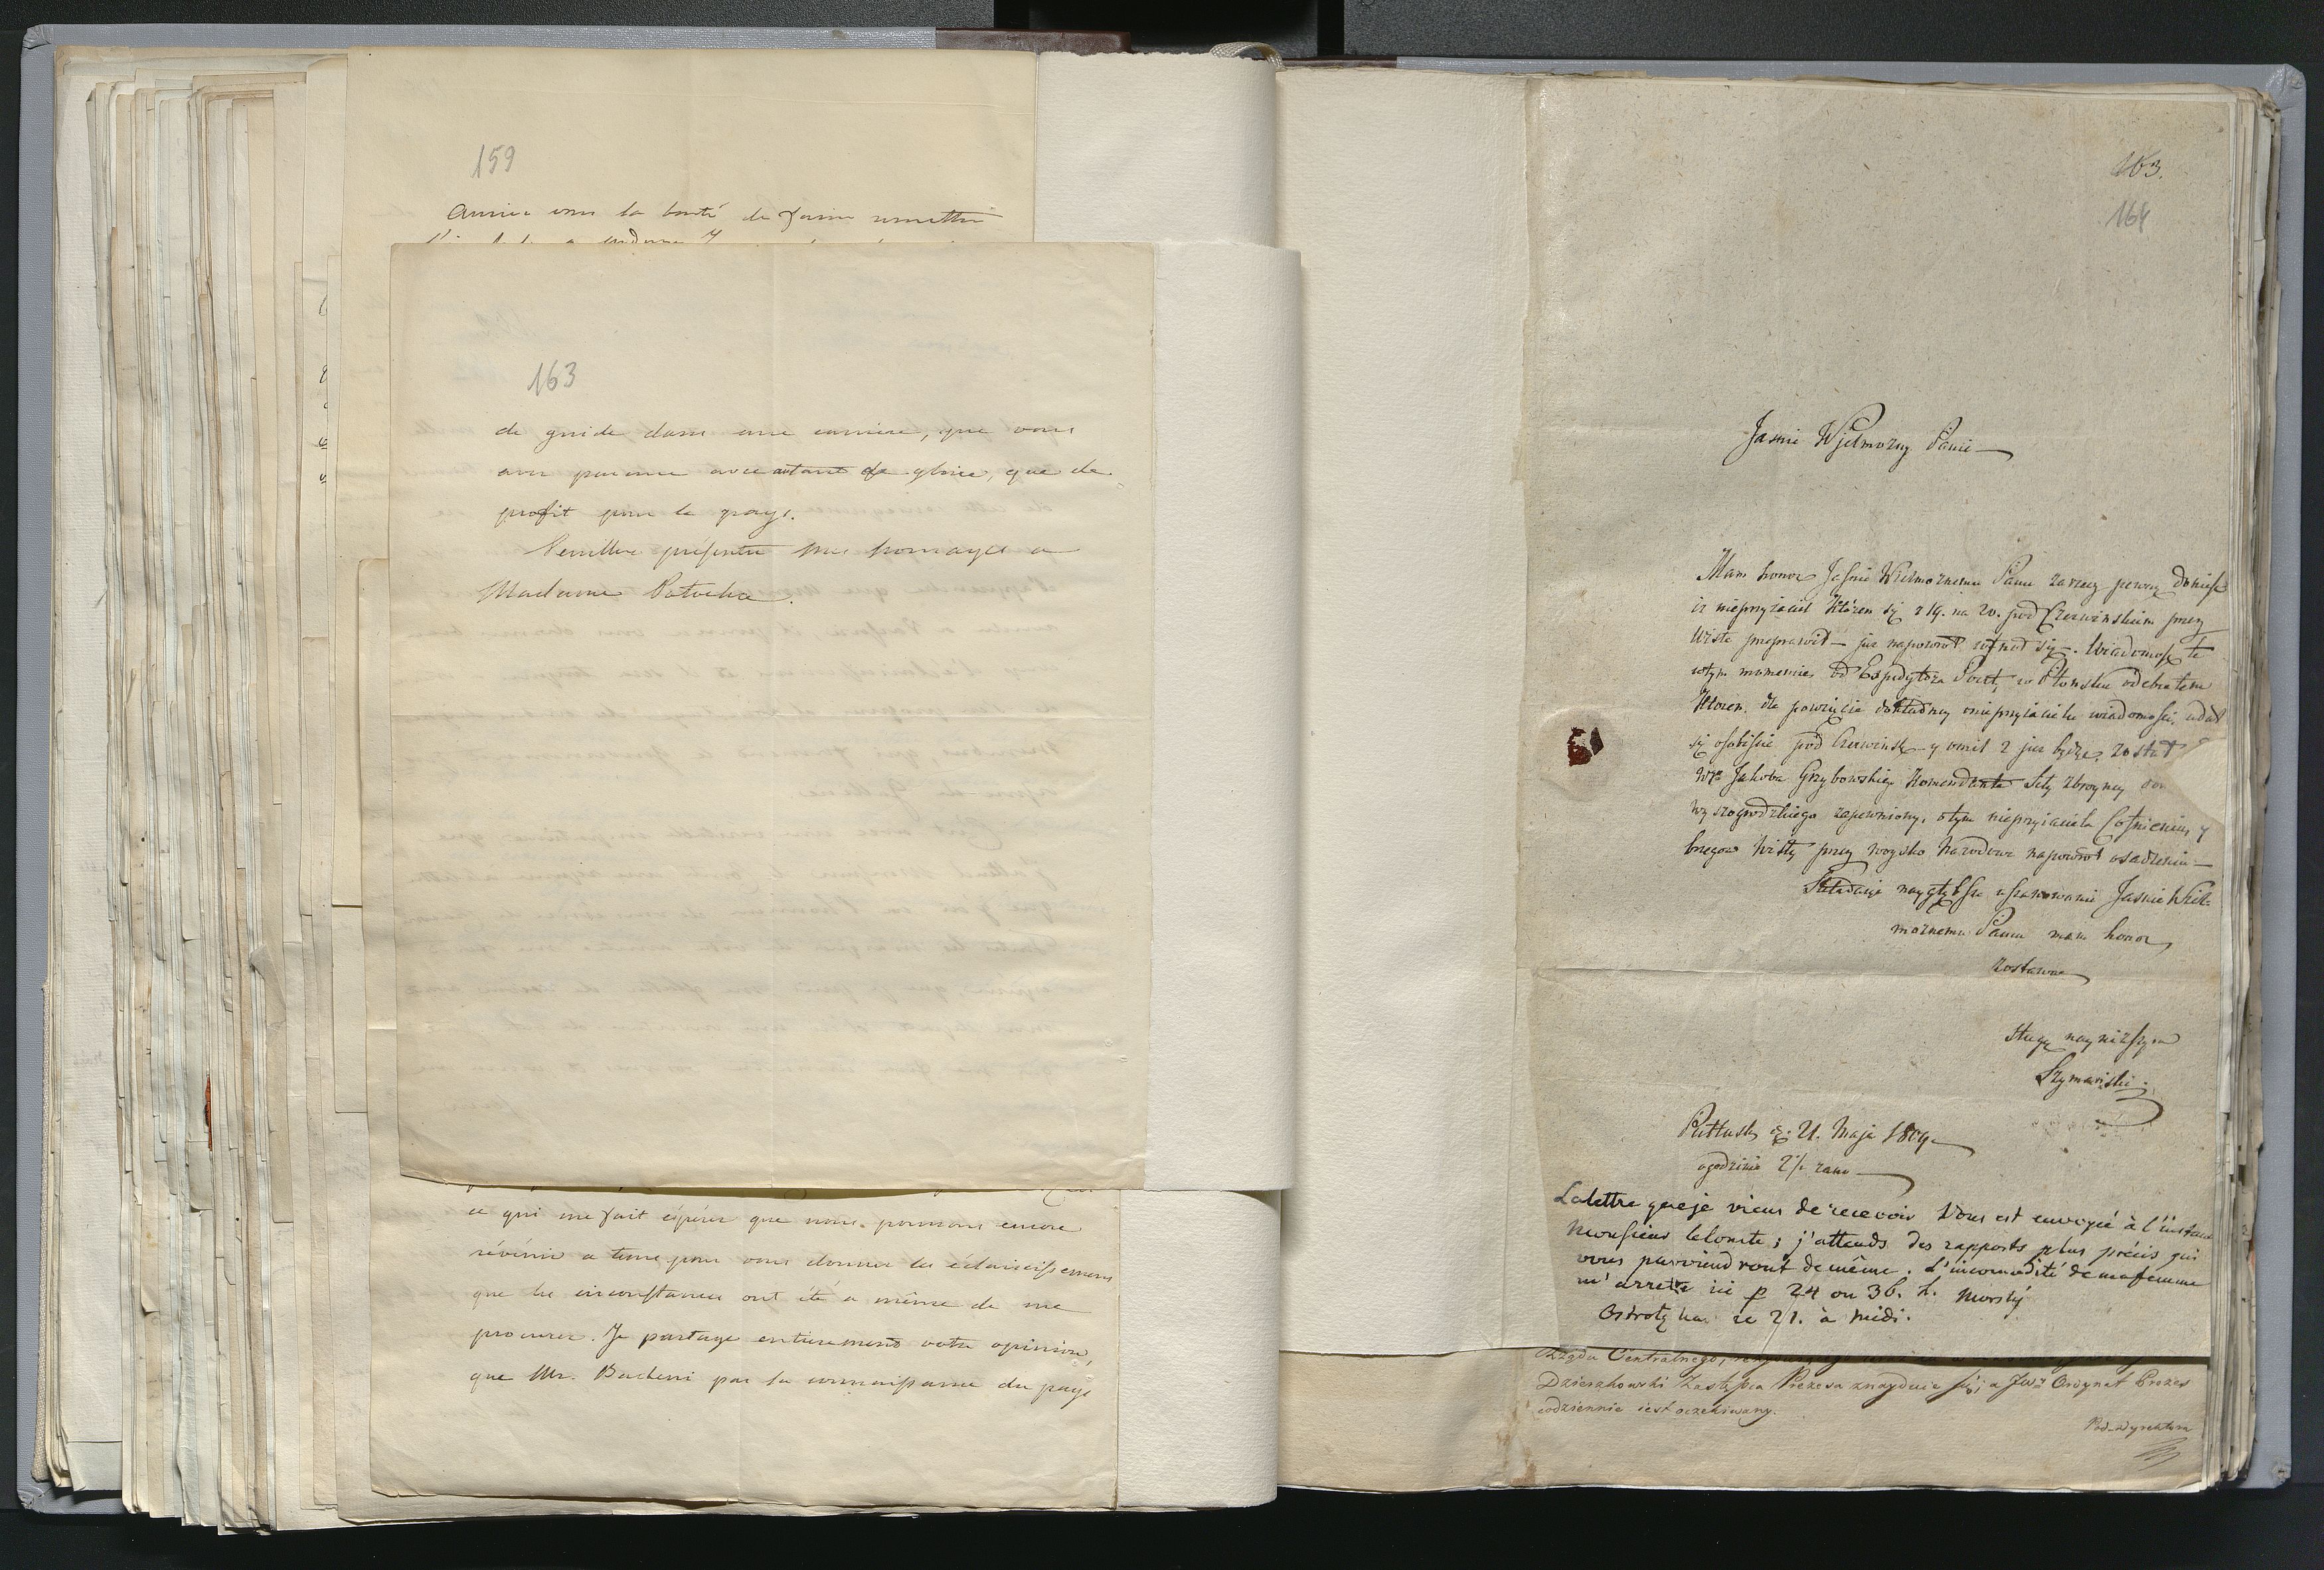 159
la bonté de faire remettre
163
de guide dans une carrière, que vous
avez parcourue avec autant de gloire, que de
profit pour le pays.
Veuillez présenter mes hommages a
Madame Potocka.
ce qui me fait espérer que nous pourrons encore
révénir a tems pour vous donner les éclaircissemens
que les circonstances ont été a même de me
procurer. Je partage entièrement votre opinion,
que Mr. Badeni par la connaissance du pays
163.
164
Jasnie Wjelmożny Panie
Mam honor Jaśnie Wielmożnemu Panu za rzecz pewną donieść
iż nieprzyiaciel któren się z 19. na 20. pod Czerwińskiem przez
Wisłę przeprawił – już napowrót cofnoł się –. Wiadomość tę
w tym momencie od Expedytora Poczt, w Płońsku odebrałem
Któren dla powzięcia dokładney o nieprzyiacielu wiadomości, udał
się osobiście pod Czerwińsk – y o mil 2 już będąc, został
Wgo Jakóba Grzybowskiego Komendanta Siły Zbroyney
Wyszogrodzkiego zapewniony, o tym nieprzyiaciela Cofnieniu, y
brzegów Wisły przez woysko Narodowe napowrót osadzeniu –
Składaiąc naygłębsze uszanowanie Jaśnie Wiel-
możnemu Panu mam honor
zostawać
sługą nayniższym
Szymański
Pułtusk d. 21. Maja 1809
o godzinie 2 1/2 rano
La lettre que je viens de recevoir Vous est envoyée à l'instant
Monsieur le Comte; j'attends des rapports plus précis qui
vous parviendront de même. L'incomodité de ma femme
m'arrete ici p 24 ou 36. h. Morski
Ostrołęka ce 21. à midi.
Rządu Centralnego,
Dzierzkowski Zastępca Prezesa znayduie się; a JWy Ordynat Prezes
codziennie iest oczekiwany.
Pod-Dyrektora